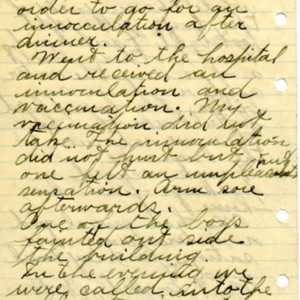 order to go for an
innocculation after
dinner.
Went to the hospital
and received an
innoculation and
vaccination. My
vaccination did not
take. The innoculation
did not hurt but
one felt an unpleasant
sensation. Arm sore
afterwards.
One of the boys
fainted out side
the building.
In the evening we
were called into the